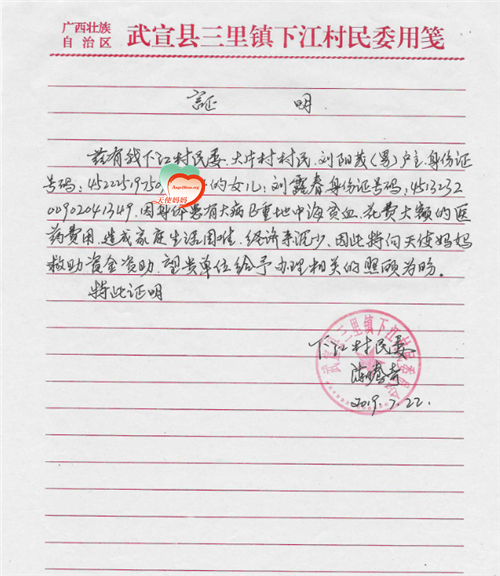 广西壮族
自治区
武宣县三里镇下江村民委用笺
証 明
兹有我下江村民委,大村村民,刘阳茂(男)户主,身份证
号码:45222519750 的女儿:刘露春身份证号码:4513232
00902041349,因身体患有大病B重地中海贫血,花费大额的医
药费用,造成家庭生活困难,经济来少,因此特向天使妈妈
救助资金资助,望贵单位给予办理相关的照顾为盼。
特此证明
天使妈妈
下江村民委
武宣县三里镇下江村民委员会
2019.7.22